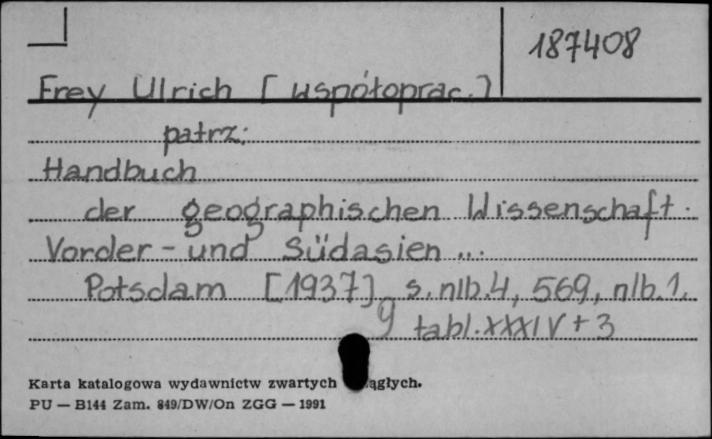 187408
Frey Ulrich [współoprac.]
patrz:
Handbuch
der geographischen Wissenschaft.
Vorder- und Südasien ...
Potsdam [1937], s. nlb. 4, 569, nlb. 1,
tabl. XXXIV + 3
Karta katalogowa wydawnictw zwartych ągłych.
PU — B144 Zam. 849/DW/On ZGG — 1991